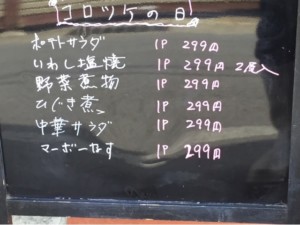 コロッケの日
ポテトサラダ 1P 299円
いわし塩焼 1P 299円 2尾入
野菜煮物 1P 299円
ひじき煮 1P 299円
中華サラダ 1P 299円
マーボーなす 1P 299円